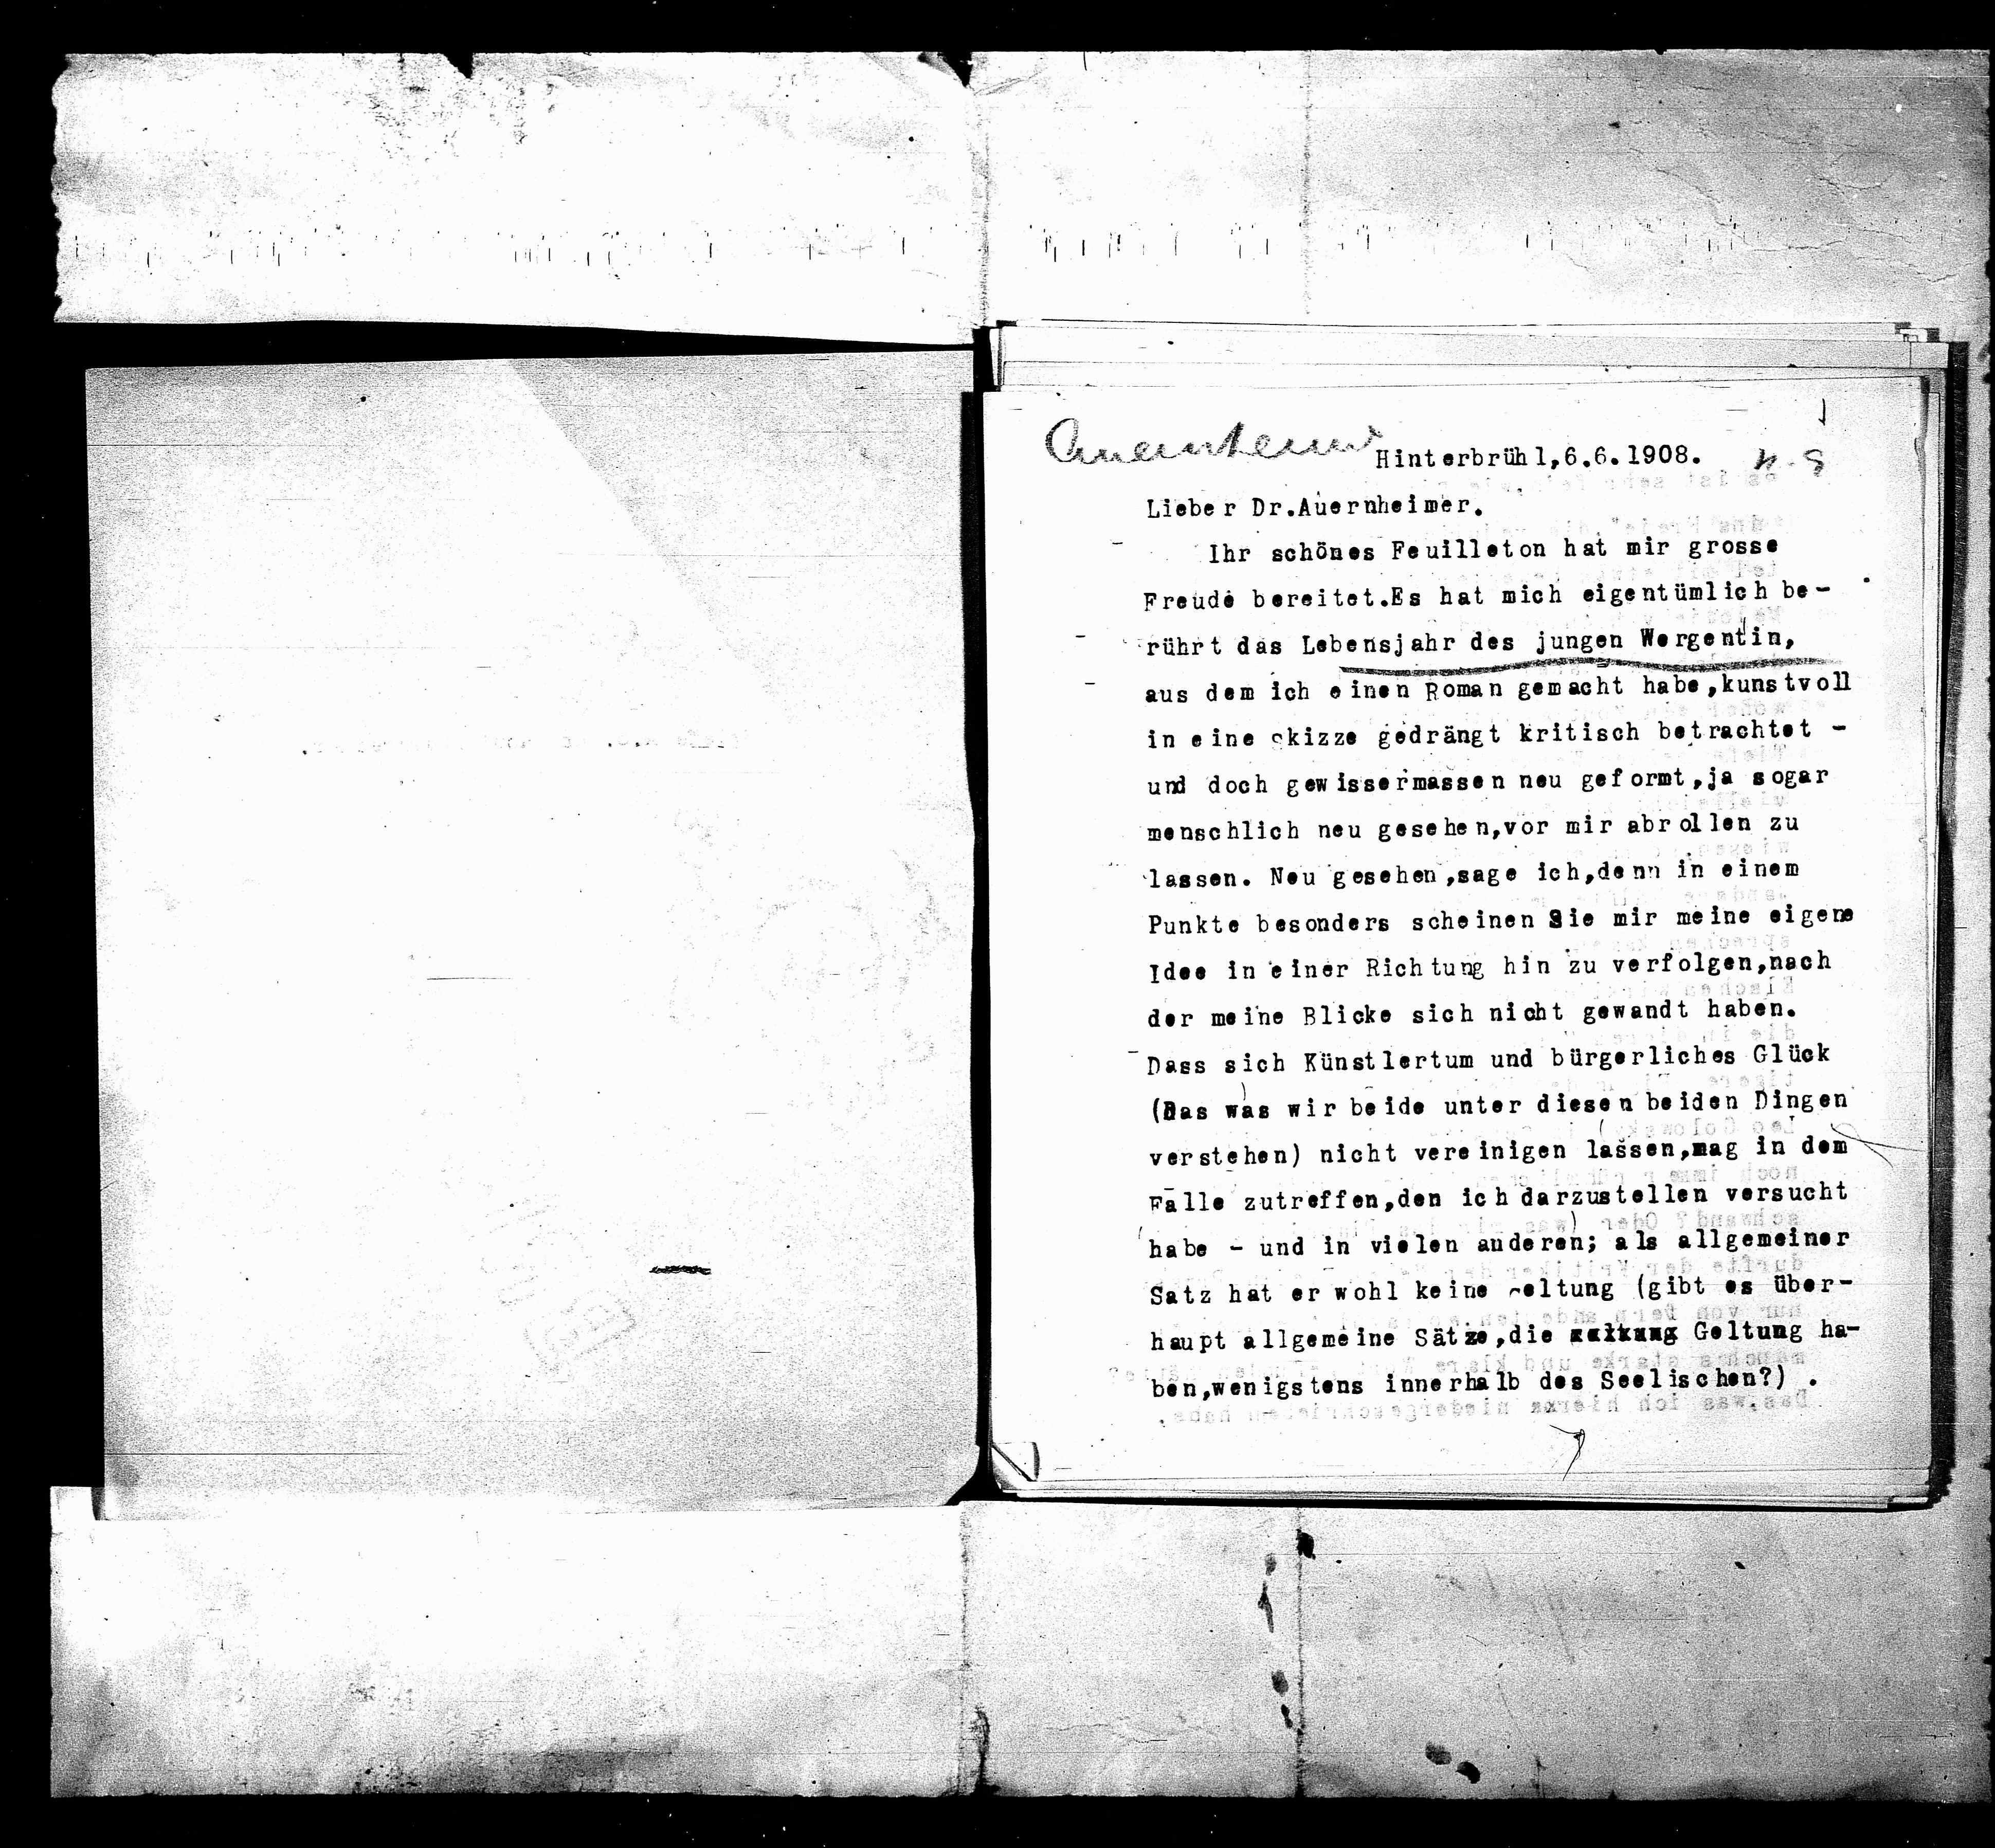 Auernheimer
Hinterbrühl,6.6.1908.
Lieber Dr.Auernheimer.
Ihr schönes Feuilleton hat mir grosse
Freude bereitet.Es hat mich eigentümlich be-
rührt das Lebensjahr des jungen Wergentin,
aus dem ich einen Roman gemacht habe,kunstvoll
in eine Skizze gedrängt kritisch betrachtet -
und doch gewissermassen neu geformt,ja sogar
menschlich neu gesehen,vor mir abrollen zu
lassen. Neu gesehen,sage ich,denn in einem
Punkte besonders scheinen Sie mir meine eigene
Idee in einer Richtung hin zu verfolgen,nach
der meine Blicke sich nicht gewandt haben.
Dass sich Künstlertum und bürgerliches Glück
(Das was wir beide unter diesen beiden Dingen
verstehen) nicht vereinigen lassen,mag in dem
Falle zutreffen,den ich darzustellen versucht
habe - und in vielen anderen; als allgemeiner
Satz hat er wohl keine Geltung (gibt es über-
haupt allgemeine Sätze,die Geltung ha-
ben,wenigstens innerhalb des Seelischen?) .